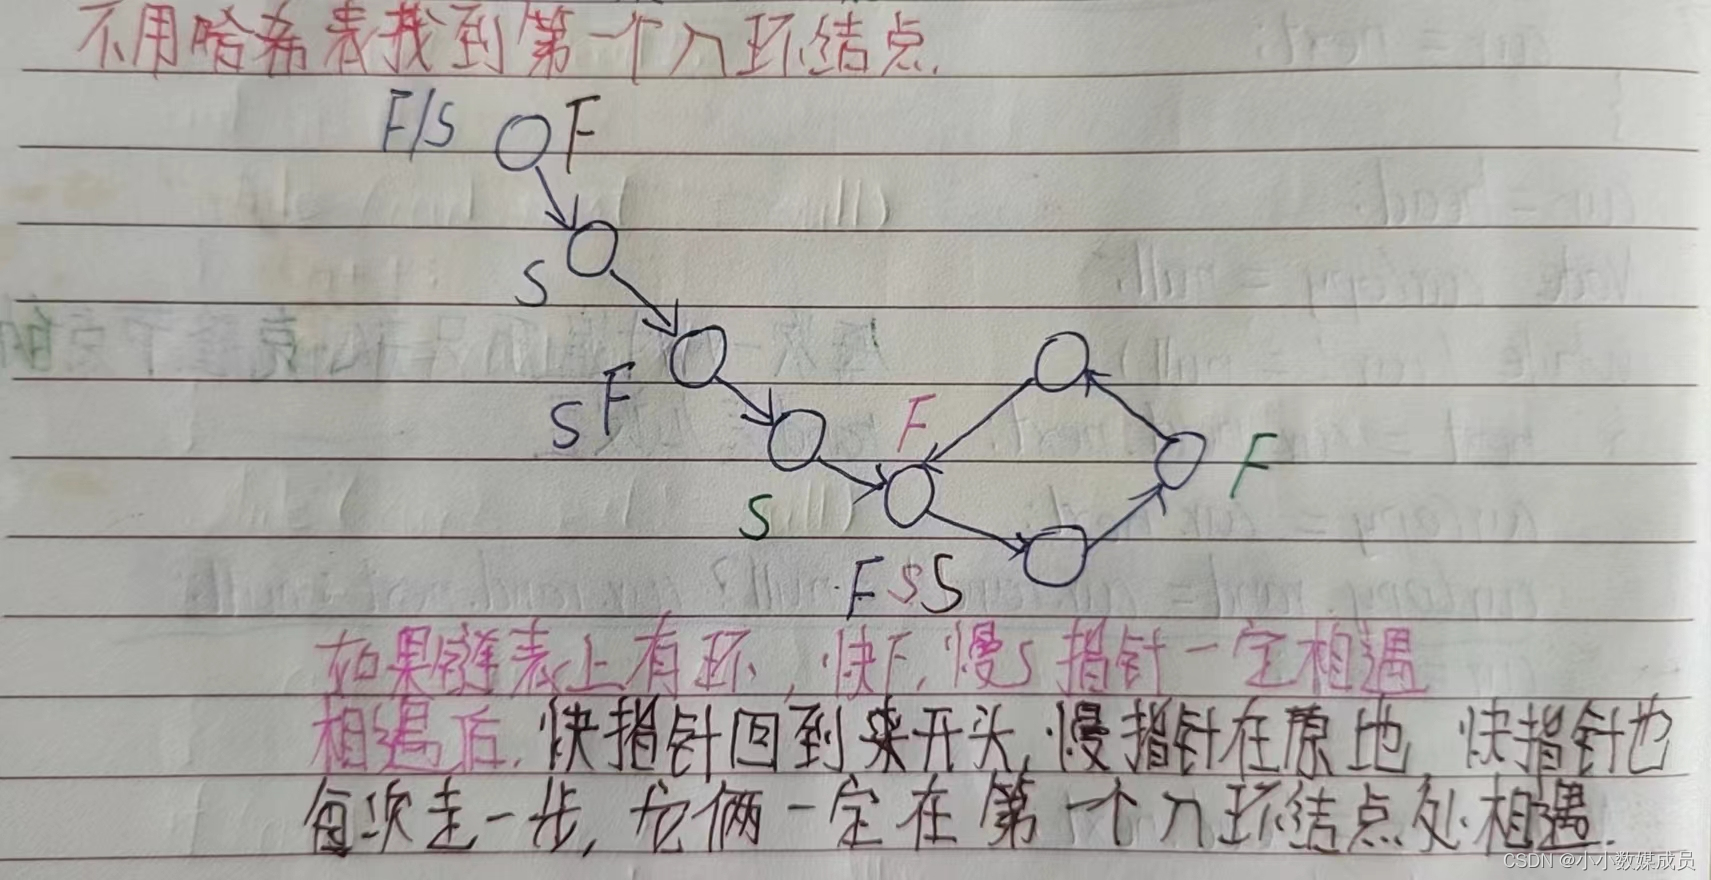 不用哈希表找到第一个入环结点.
F/S F
S
S F
F
F
S
F S S
如果链表上有环，快F，慢S 指针一定相遇
相遇后，快指针回到来开头，慢指针在原地，快指针也
每次走一步，它俩一定在第一个入环结点处相遇.
CSDN @小小数媒成员